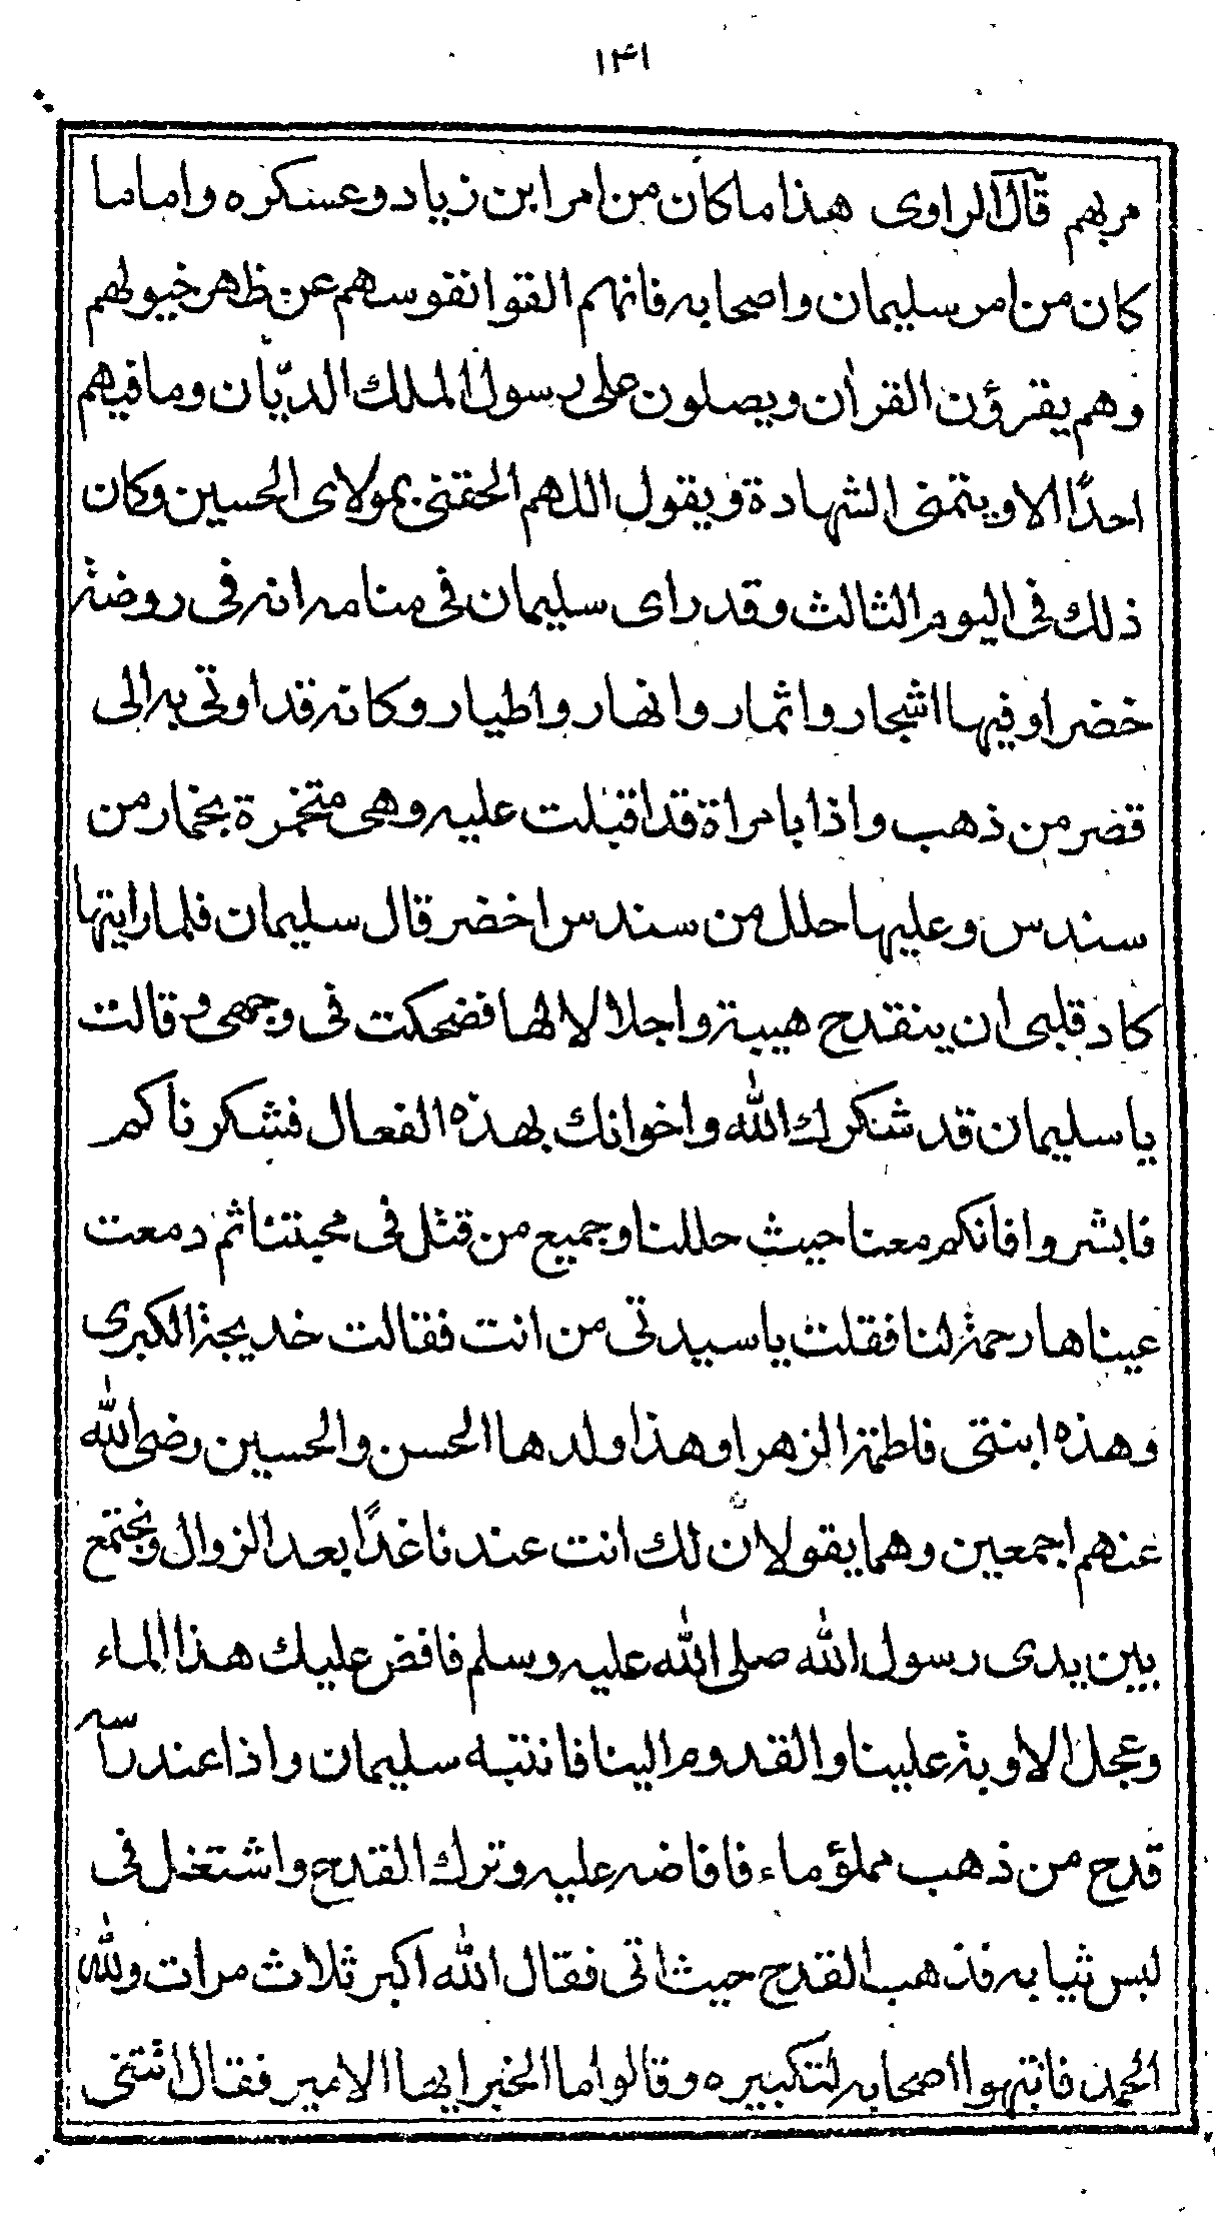 ١٤١
مربهم قال الراوى هذا ما كان من امر ابن زياد وعسكره واما ما
كان من امر سليمان واصحابه فانهم القوا نفوسهم عن ظهر خيولهم
وهم يقرؤن القرأن ويصلون على رسول الملك الديّان وما فيهم
احدًا الا ويتمنى الشهادة ويقول اللهم الحقنى بمولاى الحسين وكان
ذلك فى اليوم الثالث وقد راى سليمان فى منامه انه فى روضة
خضرا وفيها اشجار واثمار وانهار واطيار وكانه قد اوتى به الى
قصر من ذهب واذا بامراة قد اقبلت عليه وهى متخمرة بخمار من
سندس وعليها حلل من سندس اخضر قال سليمان فلما رايتها
كاد قلبى ان ينقدح هيبة واجلالا لها فضحكت فى وجهى وقالت
يا سليمان قد شكرك الله واخوانك بهذه الفعال فشكرناكم
فابشروا فانكم معنا حيث حللنا وجميع من قتل فى محبتنا ثم دمعت
عيناها رحمة لنا فقلت يا سيدتى من انت فقالت خديجة الكبرى
وهذه ابنتى فاطمة الزهرا وهذا ولدها الحسن والحسين رضى الله
عنهم اجمعين وهما يقولان لك انت عندنا غدًا بعد الزوال ونجتمع
بين يدى رسول الله صلى الله عليه وسلم فافض عليك هذا الماء
وعجل الاوبة علينا والقدوم الينا فانتبه سليمان واذا عند راسه
قدح من ذهب مملؤ ماء فافاضه عليه وترك القدح واشتغل فى
لبس ثيابه فذهب القدح حيث اتى فقال الله اكبر ثلاث مرات ولله
الحمد فانتبهوا اصحابه لتكبيره وقالوا ما الخبر ايها الامير فقال اتتنى